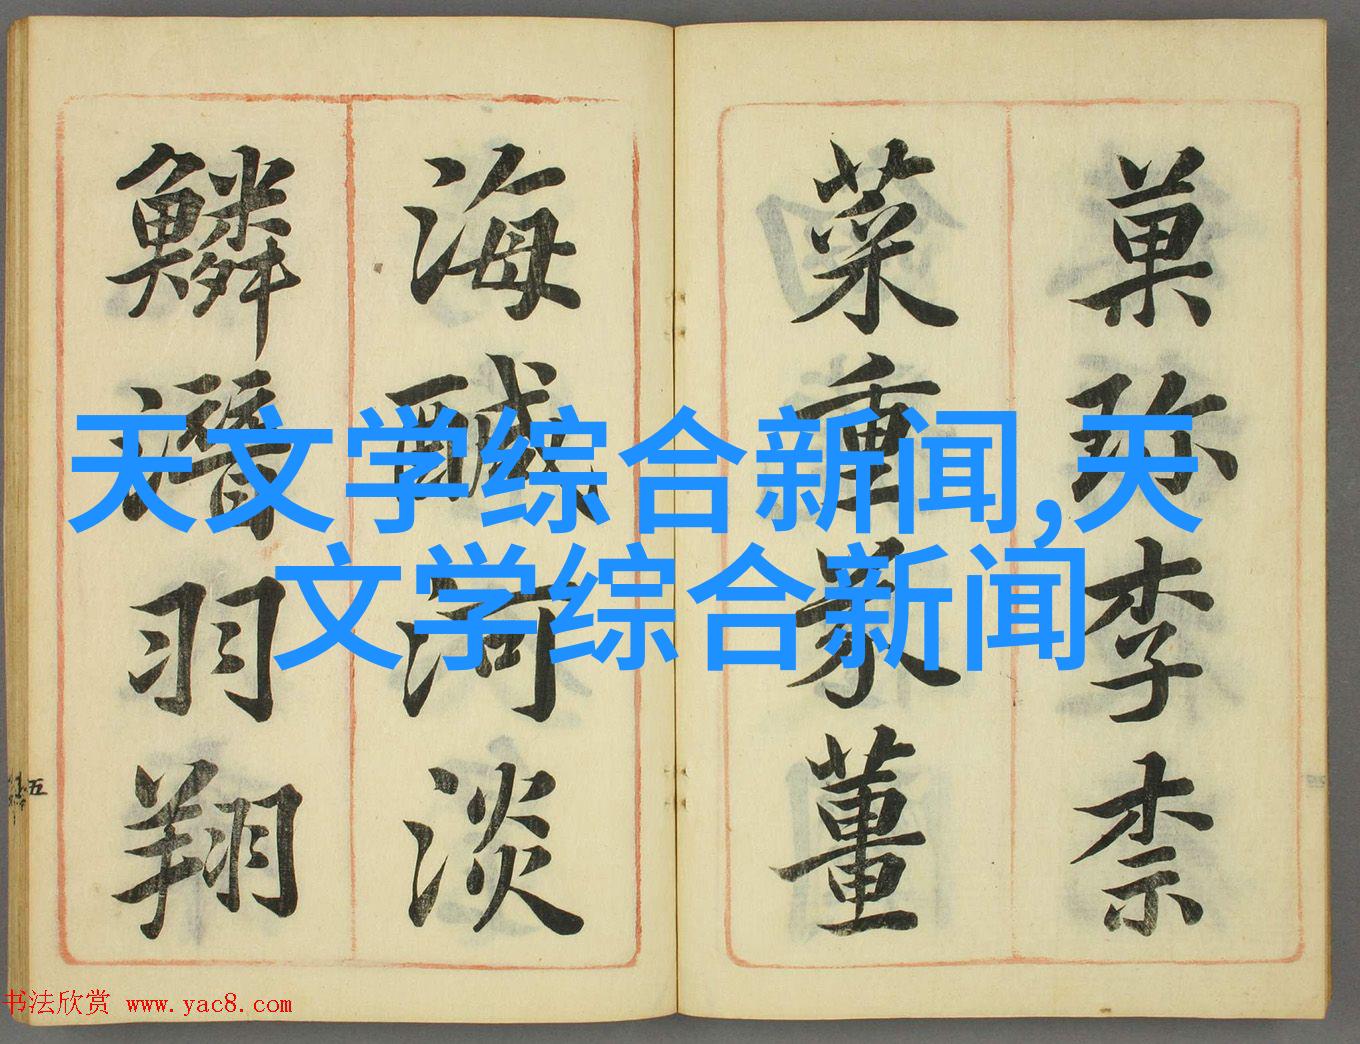 天文学综合新闻,天
文学综合新闻
菓珎李柰
菜重芥董
海醎河淡
鱗潛羽翔
五
书法欣赏 www.yac8.com